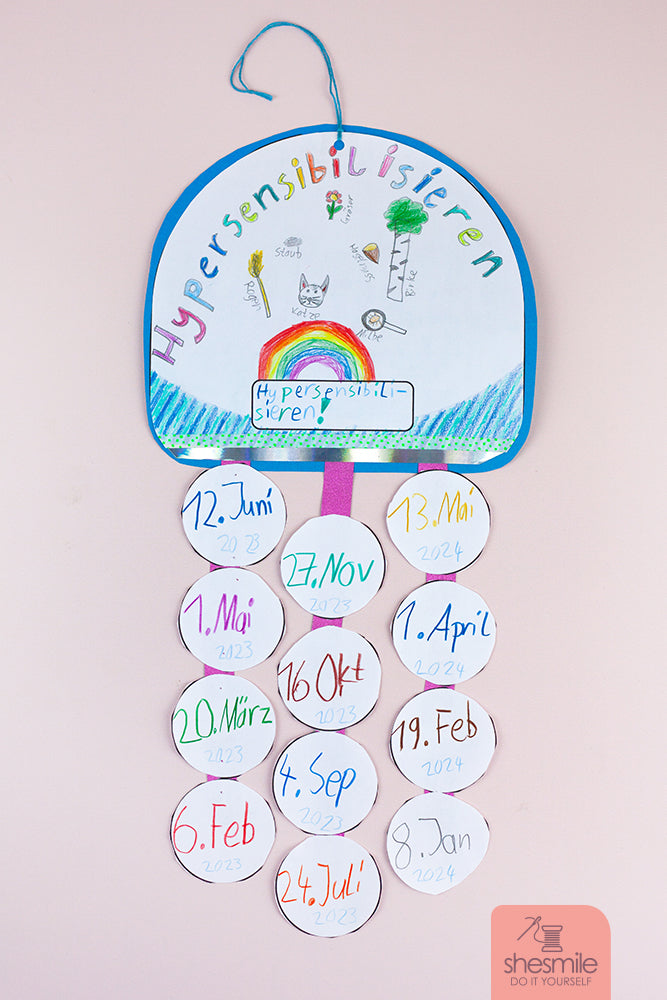 Hypersensibilisieren
Gräser
Staub
Haselnuss
Birke
Katze
Milbe
Hypersensibili-
sieren!
12. Juni
2023
1. Mai
2023
20. März
2023
6. Feb
2023
27. Nov
2023
16 Okt
2023
4. Sep
2023
24. Juli
2023
13. Mai
2024
1. April
2024
19. Feb
2024
8. Jan
2024
shesmile
DO IT YOURSELF